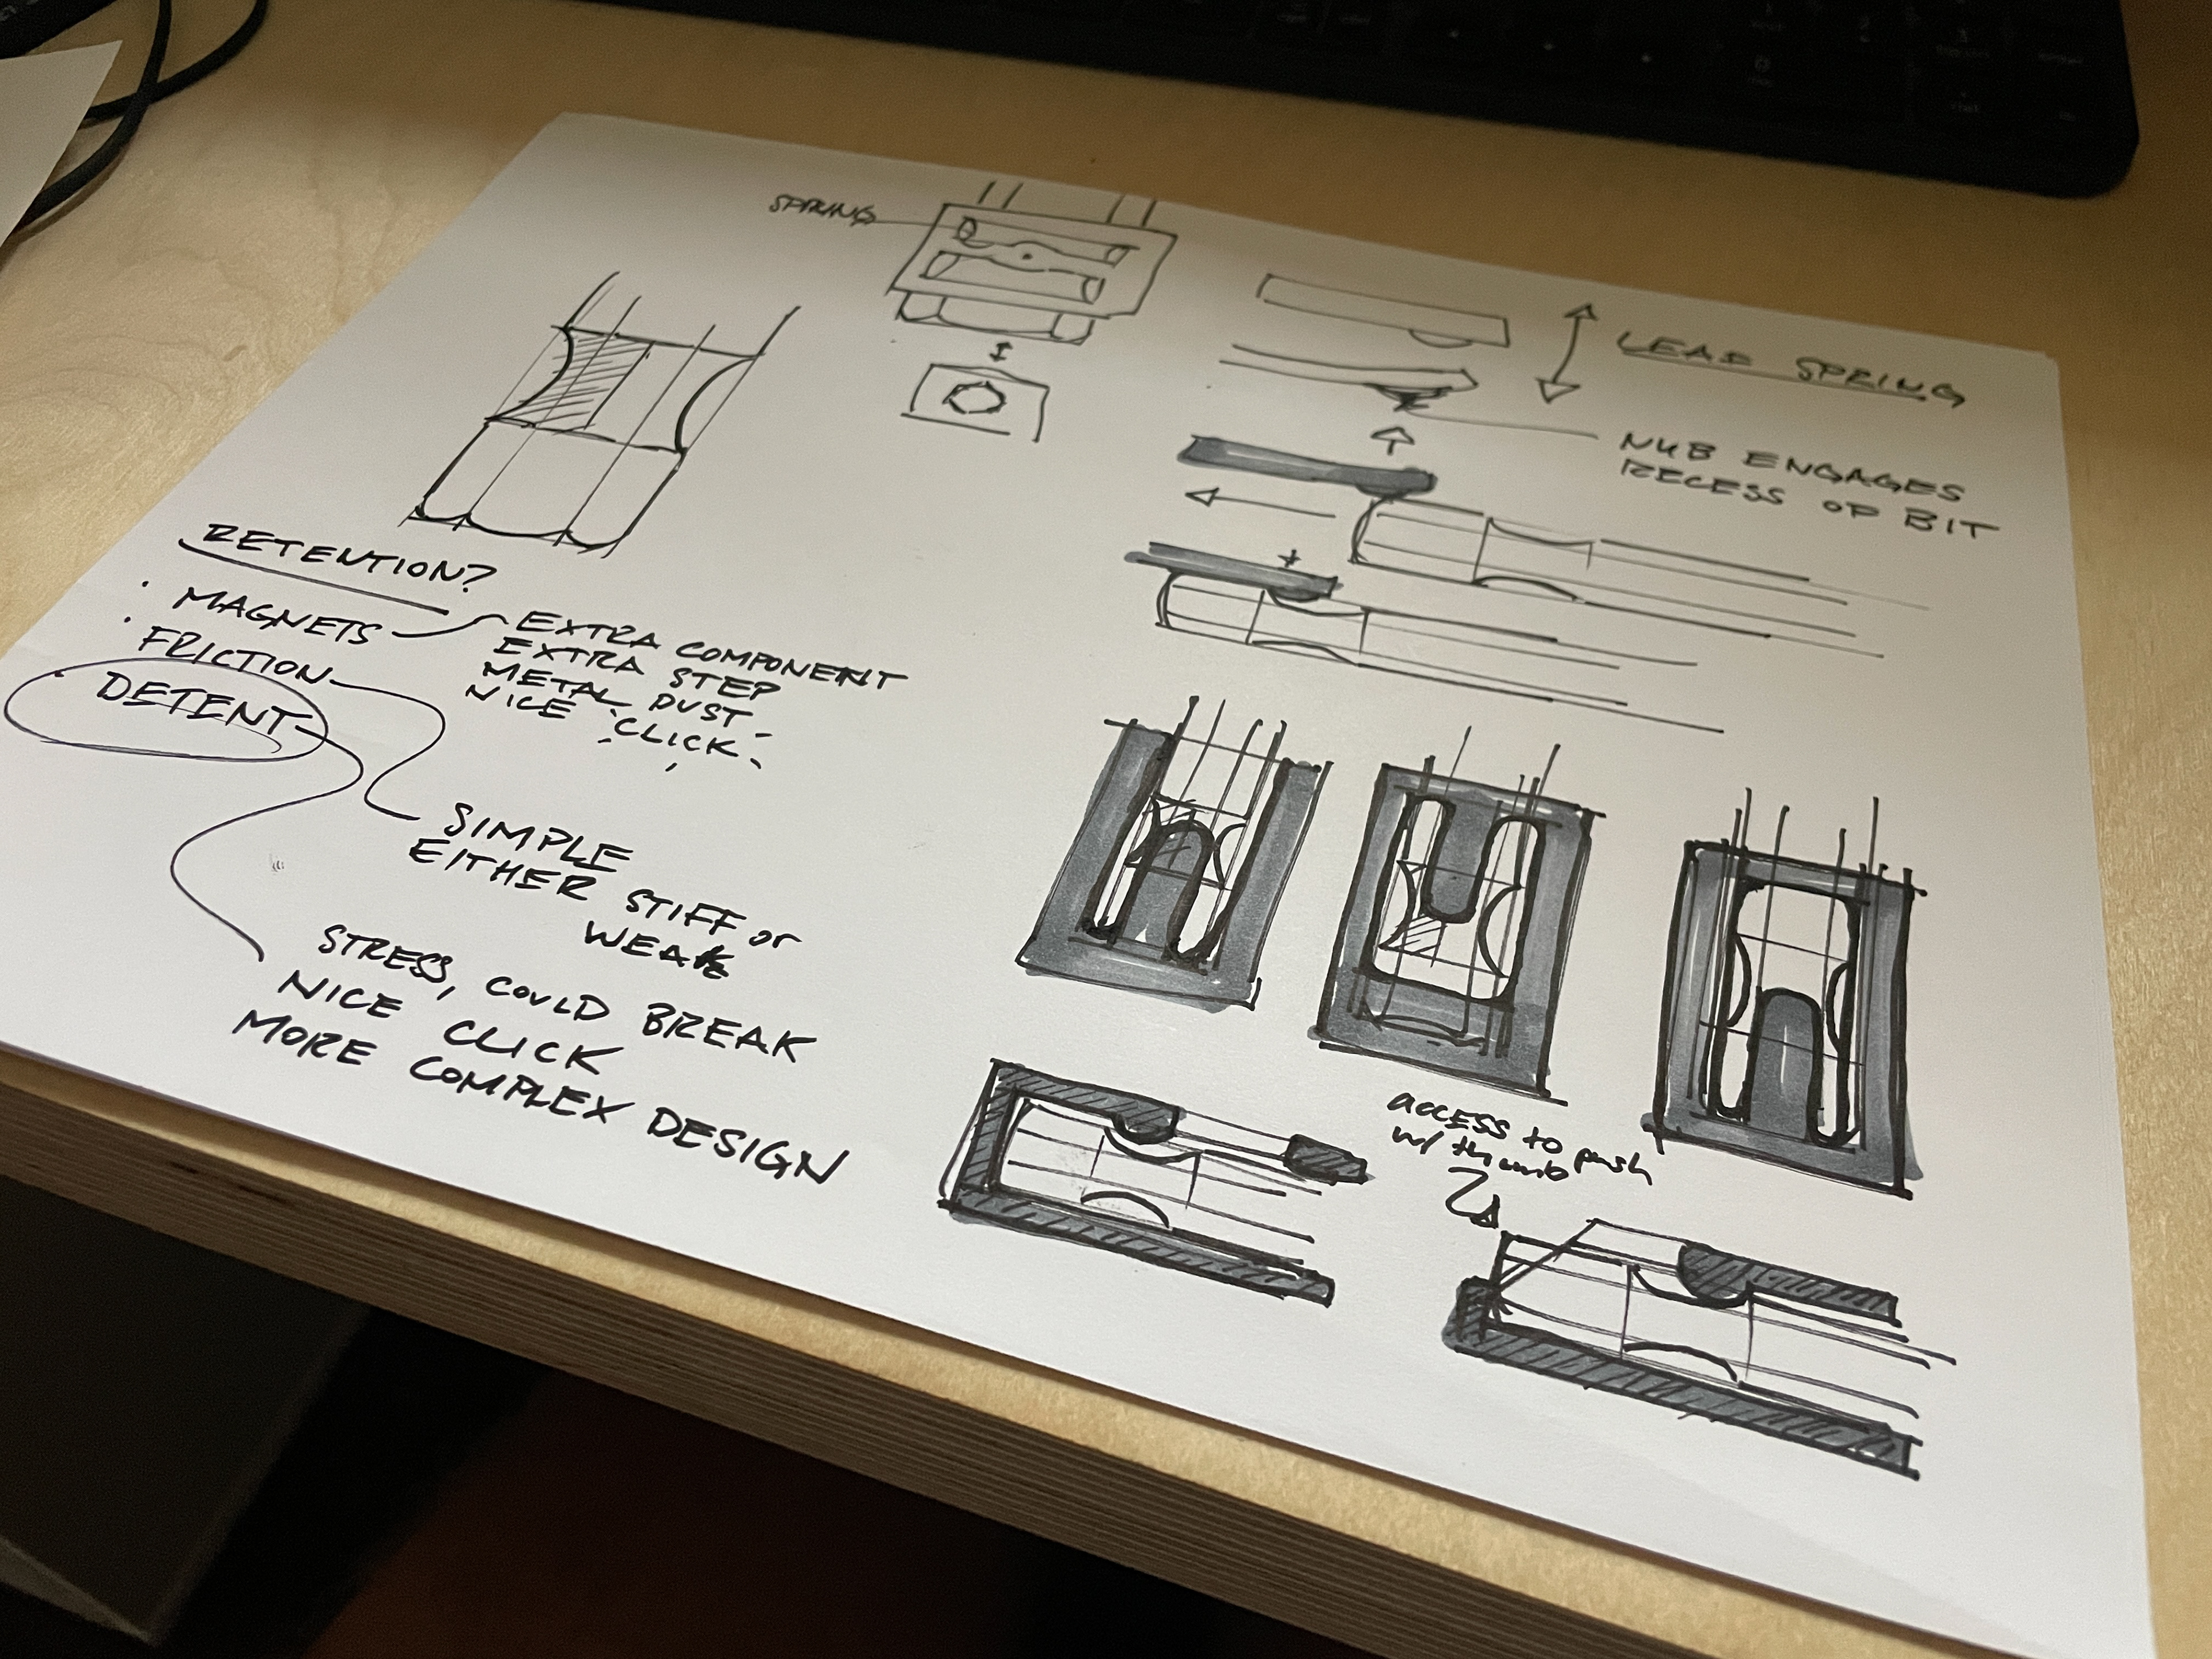 SPRING
LEAF SPRING
NUB ENGAGES
RECESS OF BIT
RETENTION?
· MAGNETS
· FRICTION
· DETENT
EXTRA COMPONENT
EXTRA STEP
METAL DUST
NICE CLICK
SIMPLE
EITHER STIFF or
WEAK
STRESS, COULD BREAK
NICE CLICK
MORE COMPLEX DESIGN
ACCESS to push
w/ thumb